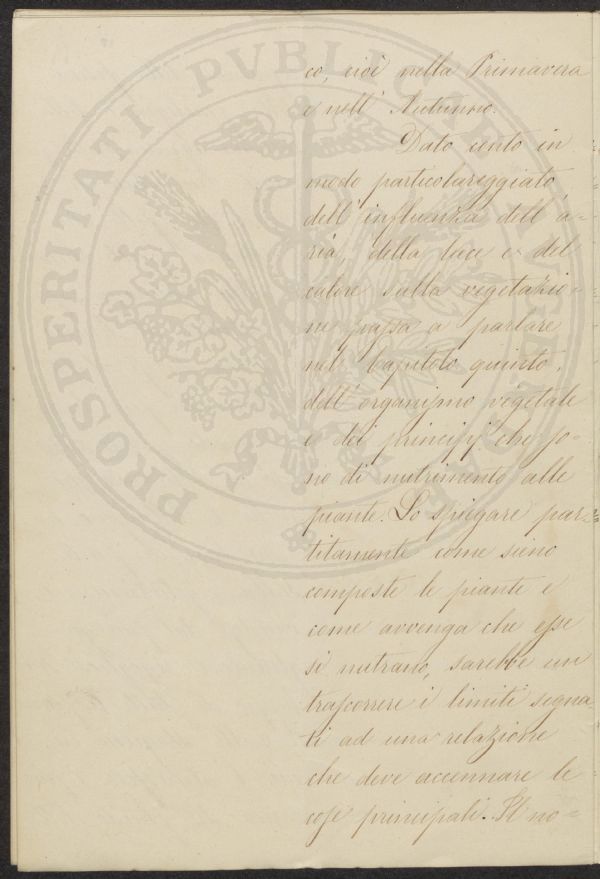 co, cioè nella Primavera
e nell' Autunno.
Dato cento in
modo particolareggiato
dell' influenza dell' a-
ria, della luce e del
calore sulla vegetazio-
ne passa a parlare
nel Capitolo quinto,
dell' organismo vegetale
e dei principj che so-
no di nutrimento alle
piante. Lo spiegare par-
titamente come sieno
composte le piante e
come avvenga che esse
si nutrano, sarebbe un
trascorrere i limiti segna-
ti ad una relazione
che deve accennare le
cose principali. Il no-
PROSPERITATI PVBLICAE